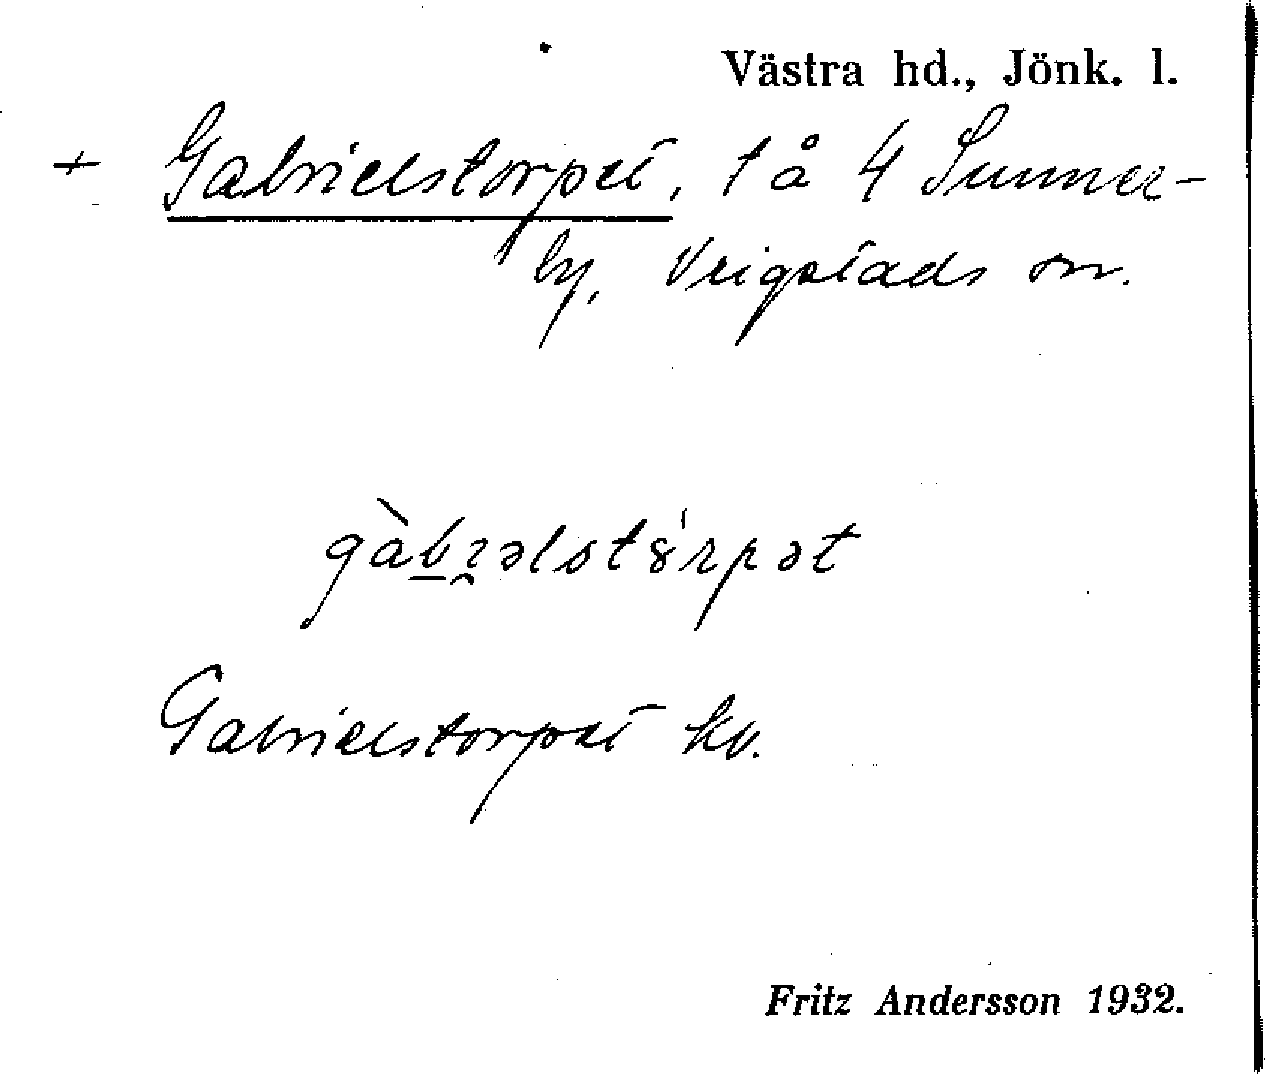 Västra hd., Jönk. l.
+ Gabrielstorpet, t å 4 Sunner-
by, Vrigstads sn.
gàbrəlstörpət
Gabrielstorpet kv.
Fritz Andersson 1932.